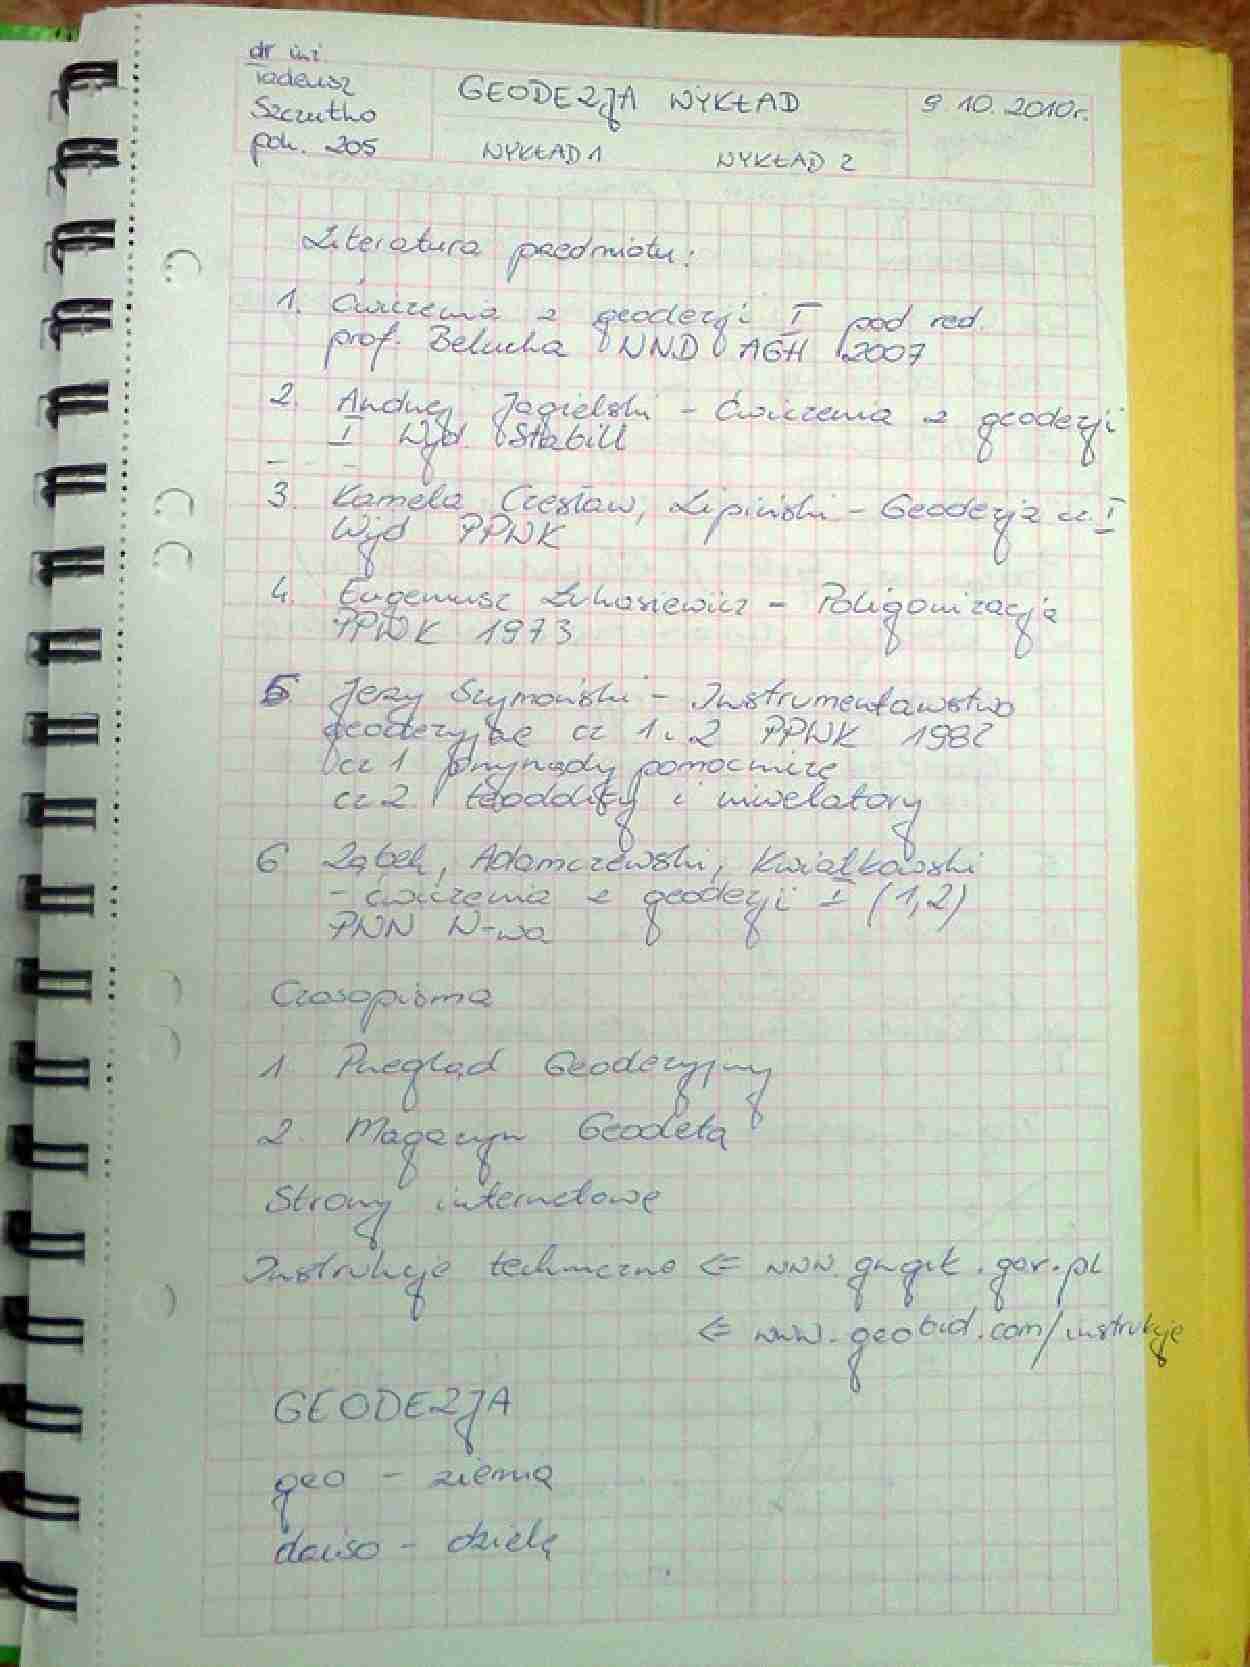 dr inż.
Tadeusz
Szczutko
pok. 205
GEODEZJA WYKŁAD
9 10. 2010r.
WYKŁAD 1 WYKŁAD 2
Literatura przedmiotu:
1. Ćwiczenia z geodezji I pod red.
prof. Belucha WND AGH 2007
2. Andrzej Jagielski - Ćwiczenia z geodezji
I Wyd Stabill
3. Kamela Czesław, Lipiński - Geodezja cz. I
Wyd PPWK
4. Eugeniusz Łukasiewicz - Poligonizacja
PPWK 1973
5 Jerzy Szymoński - Instrumentawstwo
geodezyjne cz 1 i 2 PPWK 1982
cz 1 przyrządy pomocnicze
cz 2 teodolity i niwelatory
6 Ząbek, Adamczewski, Kwiatkowski
- ćwiczenia z geodezji I (1,2)
PWN W-wa
Czasopisma
1. Przegląd Geodezyjny
2. Magazyn Geodeta
Strony internetowe
Instrukcje techniczne <= www.gugik.gov.pl
<= www.geobid.com/instrukcje
GEODEZJA
geo - ziemia
daiso - dzielę